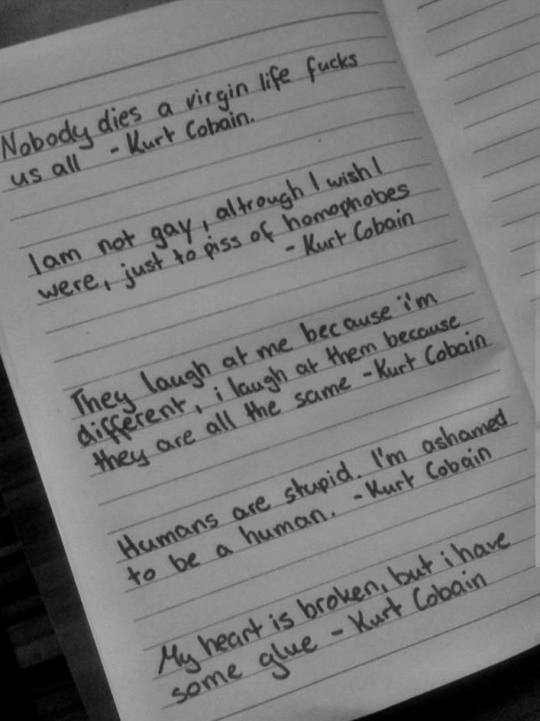 Nobody dies a virgin life fucks
us all - Kurt Cobain.
I am not gay, altrough I wish I
were, just to piss of homophobes
- Kurt Cobain
They laugh at me because i'm
different, i laugh at them because
they are all the same - Kurt Cobain
Humans are stupid. I'm ashamed
to be a human. - Kurt Cobain
My heart is broken, but i have
some glue - Kurt Cobain